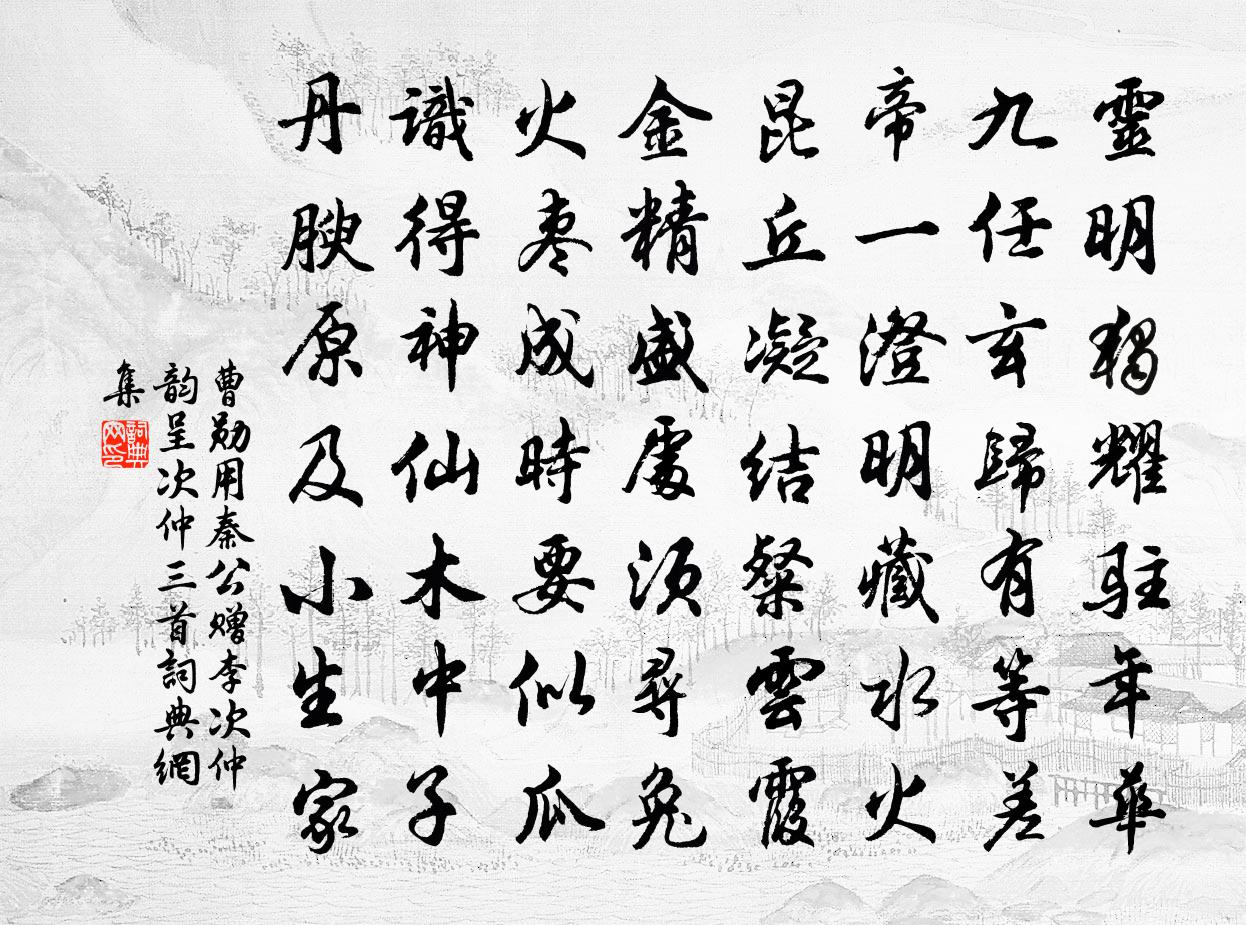 靈明獨耀駐年華
九任玄歸有等差
帝一澄明藏水火
昆丘凝結粲雲霞
金精盛處須尋兔
火棗成時要似瓜
識得神仙木中子
丹腴原及小生家
曹勛用秦公赠李次仲
韵呈次仲三首詞典網
集
詞典
网印